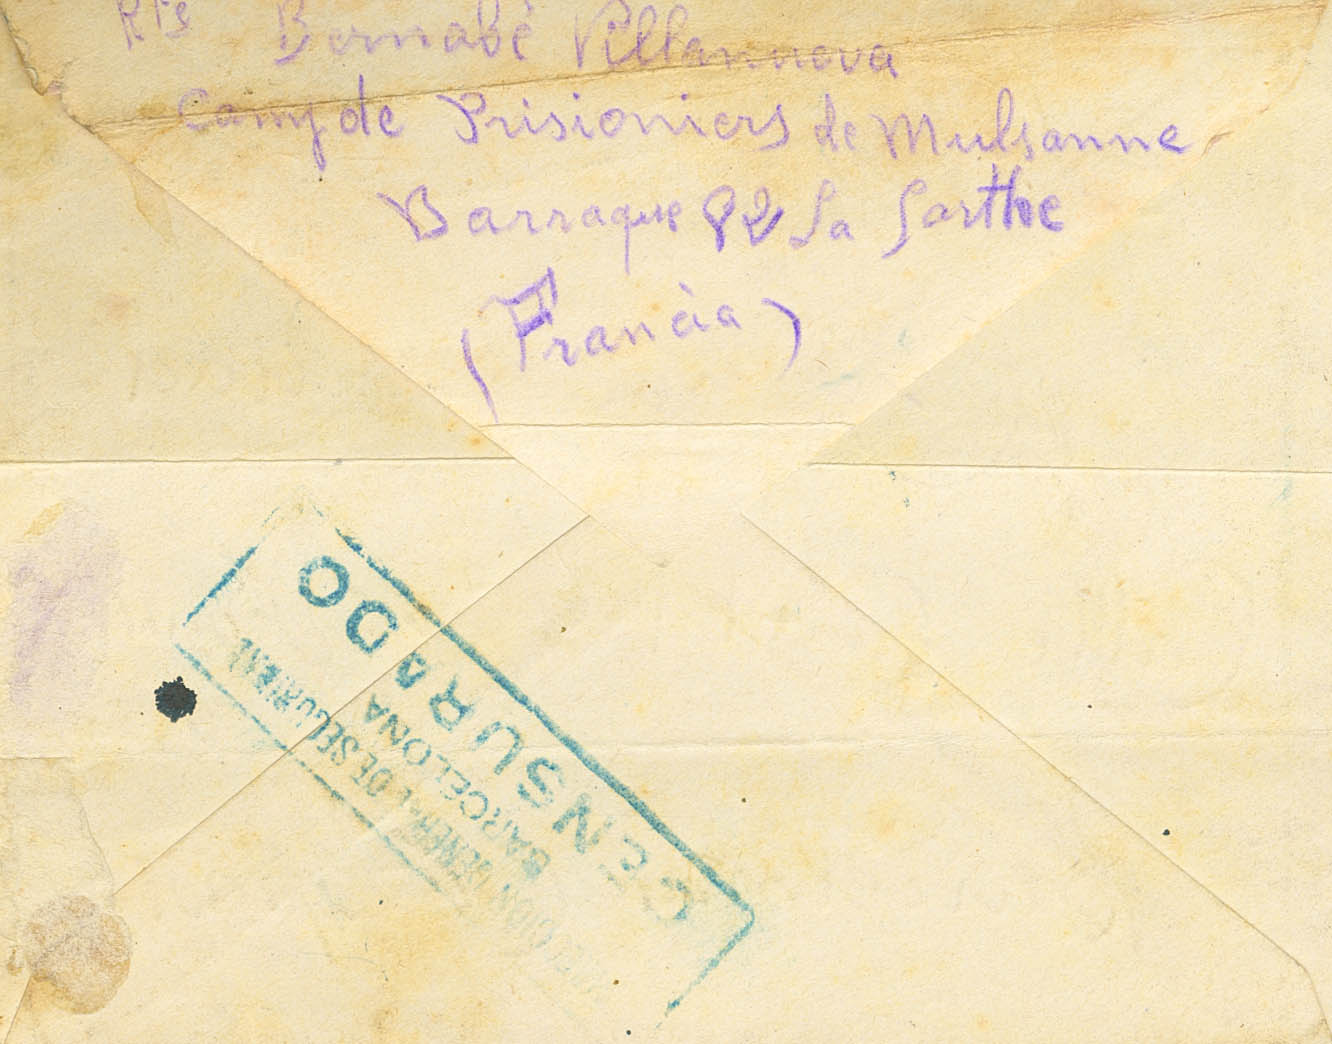 Rte Bernabè Villannueva
Camp de Prisioniers de Mulsanne
Barraque 82 La Sarthe
(Francia)
GENERAL DE SEGURIDAD
BARCELONA
CENSURADO